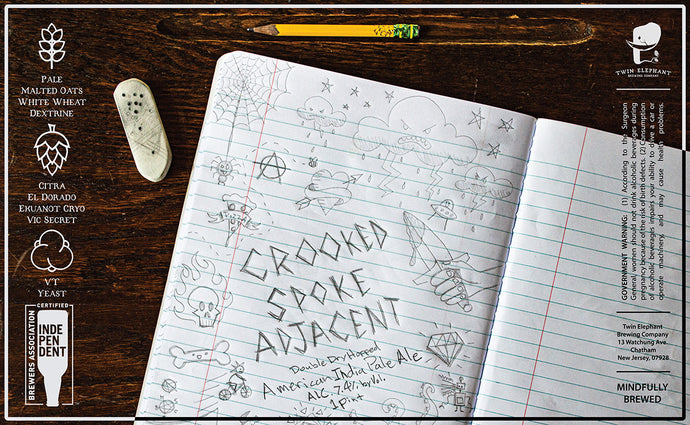 PALE
MALTED OATS
WHITE WHEAT
DEXTRINE
CITRA
EL DORADO
EKUANOT CRYO
VIC SECRET
VT
YEAST
CERTIFIED
BREWERS ASSOCIATION
INDE
PEN
DENT
CROOKED
SPOKE
ADJACENT
Double Dry Hopped
American India Pale Ale
ALC. 7.4% by Vol.
1 Pint
TWIN ELEPHANT
BREWING COMPANY
GOVERNMENT WARNING: (1) According to the Surgeon
General, women should not drink alcoholic beverages during
pregnancy because of the risk of birth defects. (2) Consumption
of alcoholic beverages impairs your ability to drive a car or
operate machinery, and may cause health problems.
Twin Elephant
Brewing Company
13 Watchung Ave.
Chatham
New Jersey, 07928
MINDFULLY
BREWED